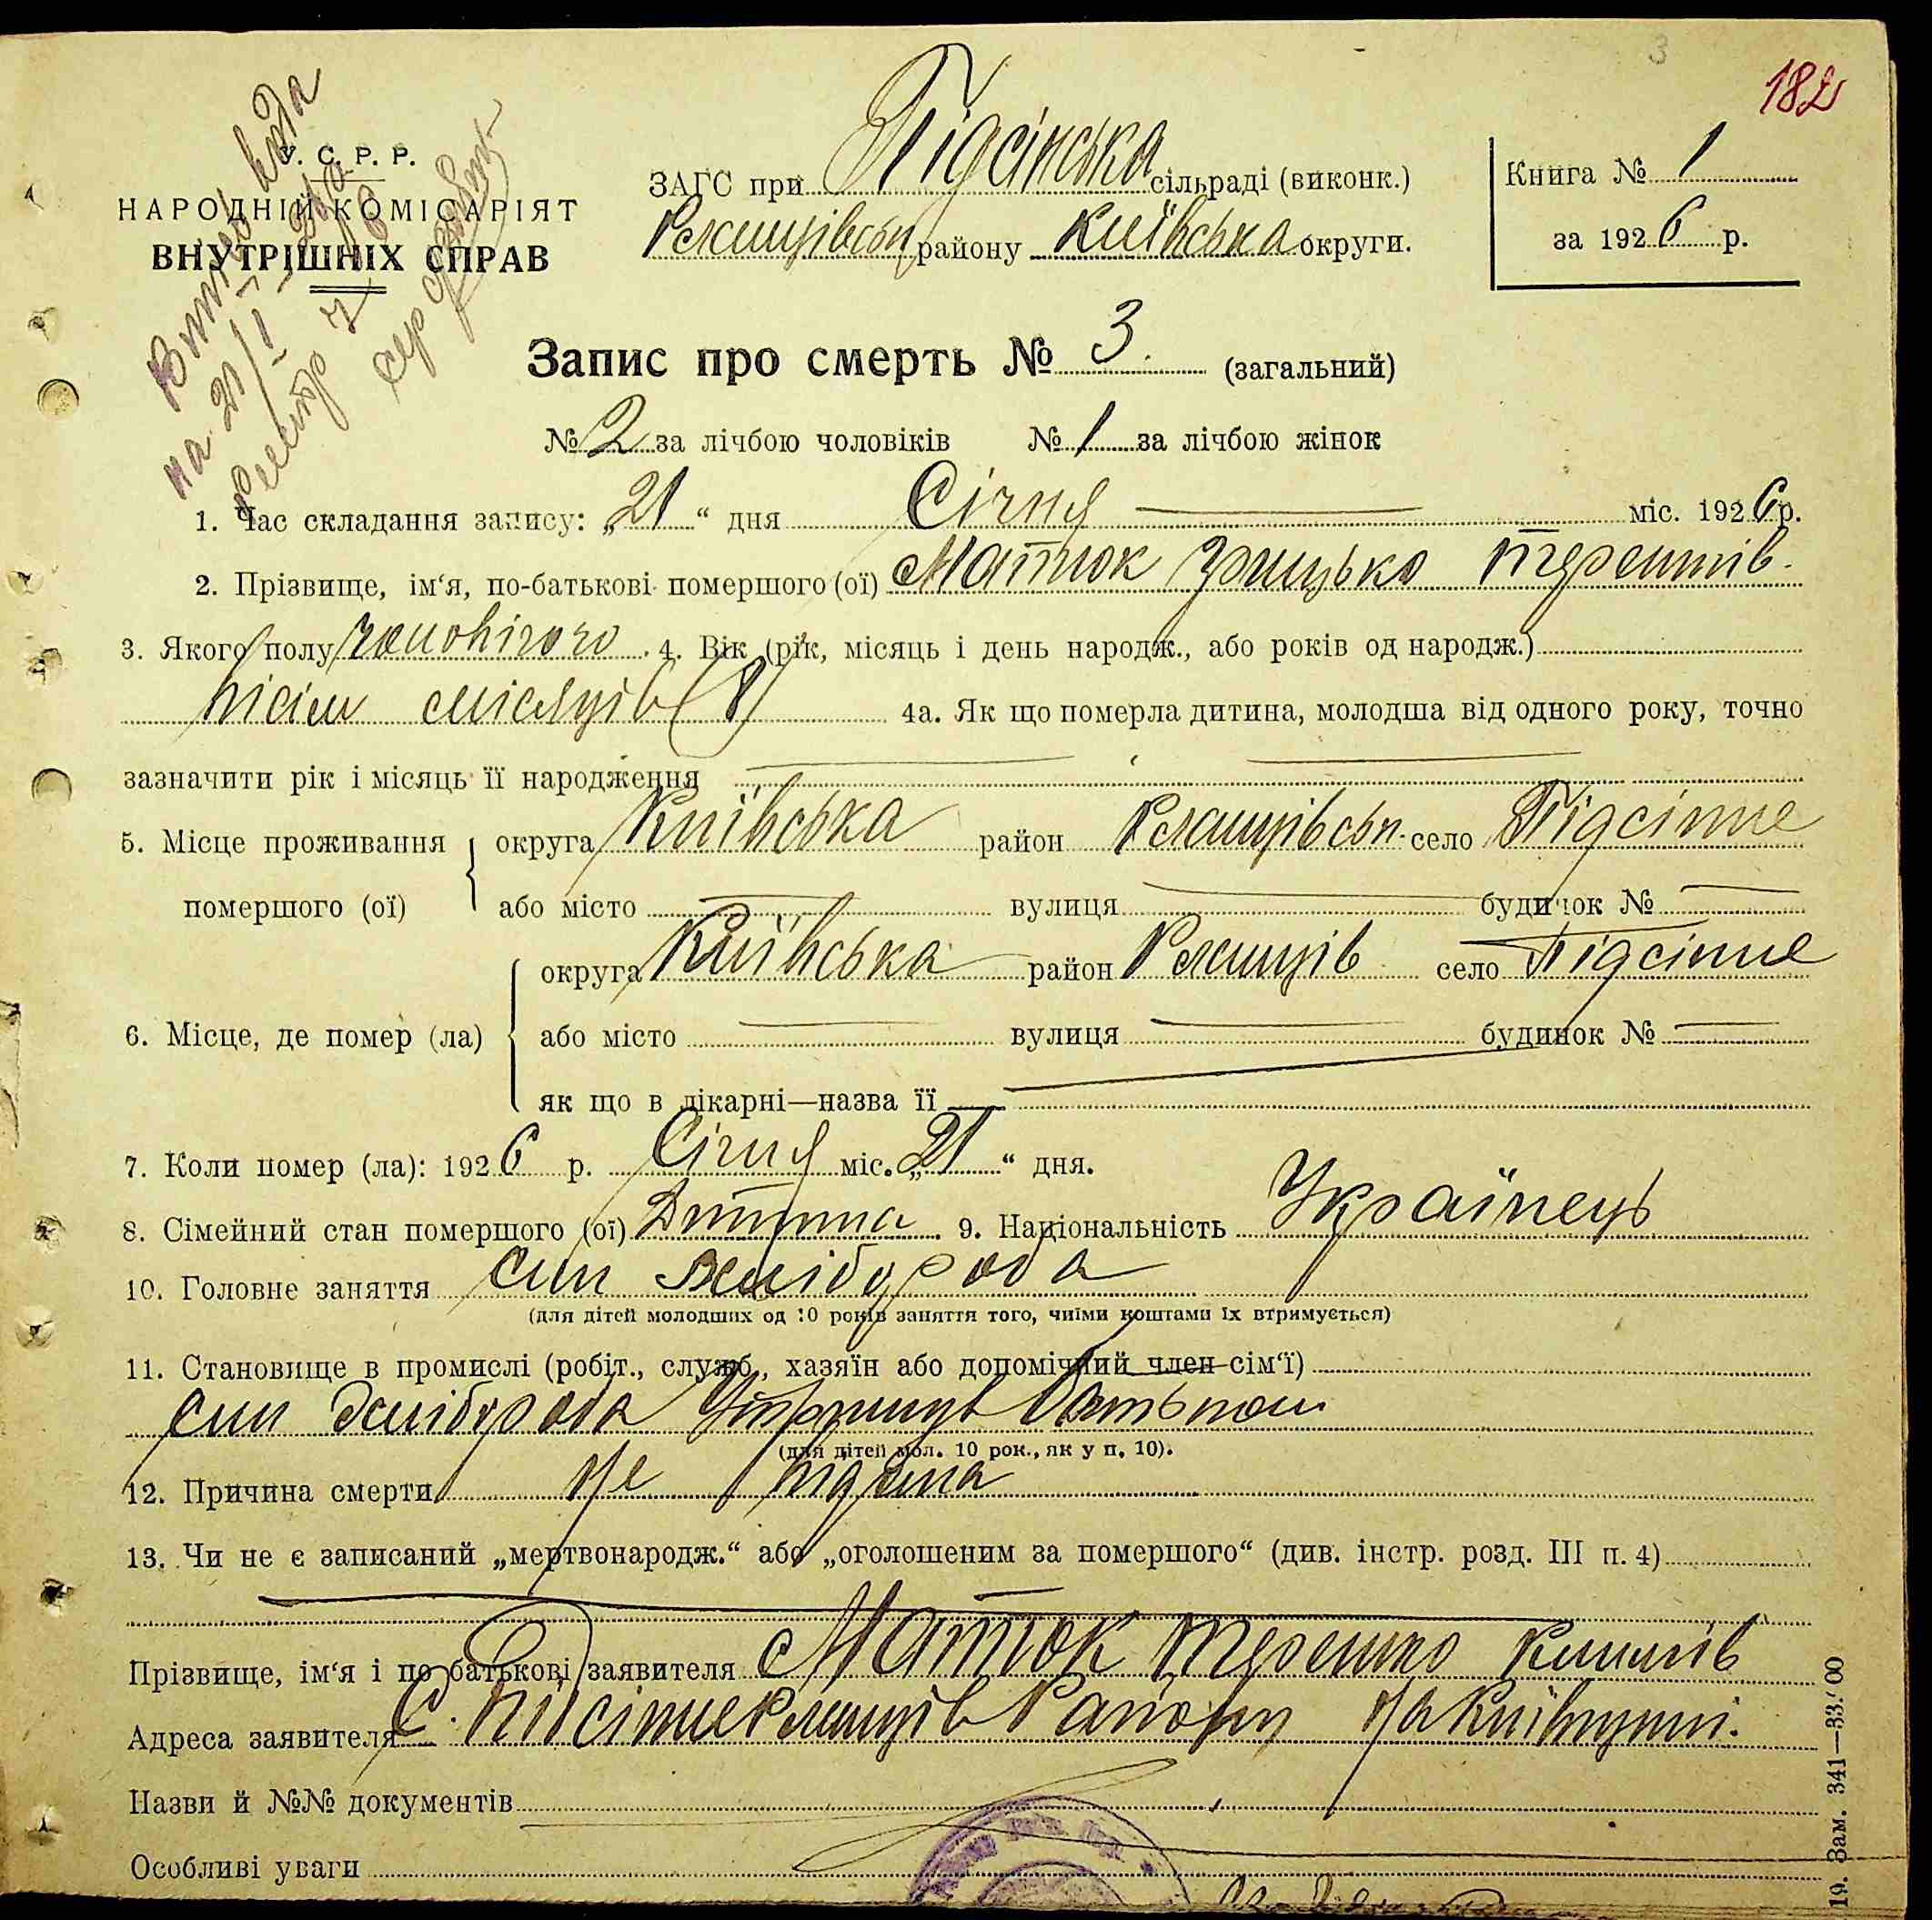 3
182
У. С. Р. Р.
НАРОДНІЙ КОМІСАРІЯТ
ВНУТРІШНІХ СПРАВ
на 21/I
ЗАГС при Підсінська сільраді (виконк.)
Ржищівськ району Київська округи.
Книга № 1
за 1926 р.
Запис про смерть № 3. (загальний)
№ 2 за лічбою чоловіків № 1 за лічбою жінок
1. Час складання запису: „21“ дня Січня міс. 1926 р.
2. Прізвище, ім‘я, по-батькові помершого (ої) Матюк Грицько Терешків.
3. Якого полу чоловічого. 4. Вік (рік, місяць і день народж., або років од народж.)
вісім місяців (8) 4а. Як що померла дитина, молодша від одного року, точно
зазначити рік і місяць її народження
5. Місце проживання помершого (ої) округа Київська район Ржищівськ. село Підсінне
або місто вулиця будинок №
6. Місце, де помер (ла) округа Київська район Ржищів село Підсінне
або місто вулиця будинок №
як що в лікарні—назва її
7. Коли помер (ла): 1926 р. Січня міс. „21“ дня.
8. Сімейний стан помершого (ої) Дитина. 9. Національність Українець
10. Головне заняття син хлібороба
(для дітей молодших од 10 років заняття того, чиїми коштами їх втримується)
11. Становище в промислі (робіт., служб., хазяїн або допомічний член сім‘ї)
син хлібороба Батьком
(для дітей мол. 10 рок., як у п. 10).
12. Причина смерти Не відома
13. Чи не є записаний „мертвонародж.“ або „оголошеним за помершого“ (див. інстр. розд. III п. 4)
Прізвище, ім‘я і по батькові заявителя Матюк Терешко
Адреса заявителя С. Підсінне Ржищів Району на Київщині.
Назви й №№ документів
Особливі уваги
19. Зам. 341—33.000